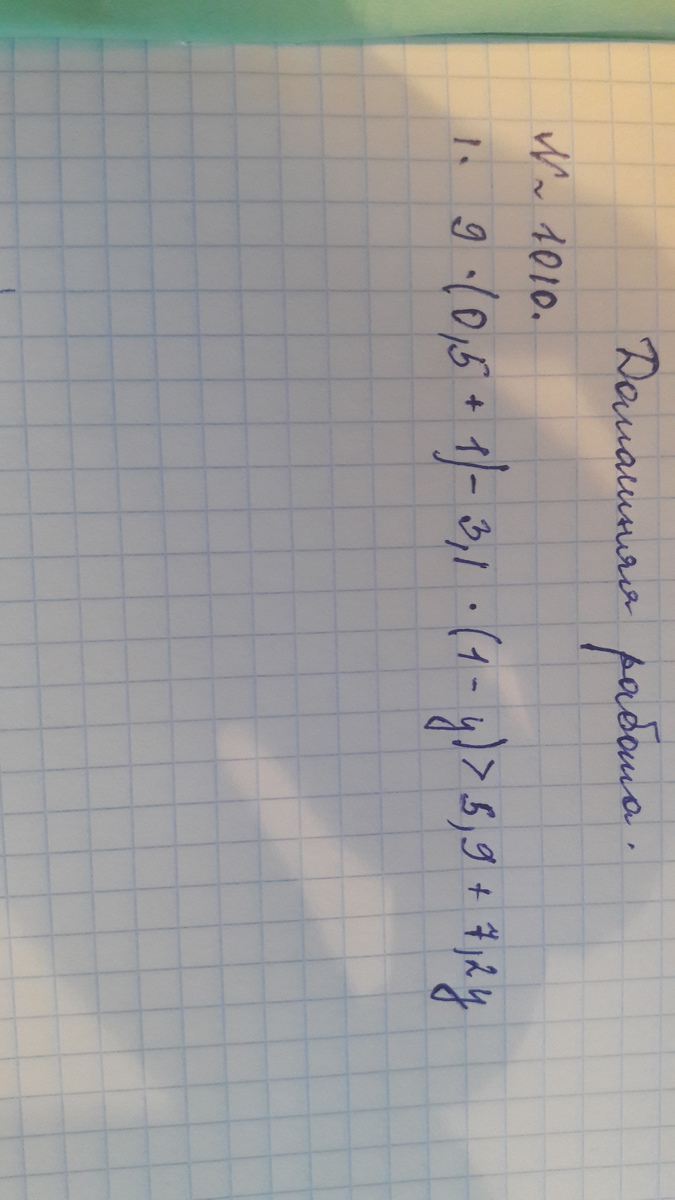 Домашняя работа.
№ 1010.
1. 9 · (0,5 + 1) - 3,1 · (1 - y) > 5,9 + 7,2y